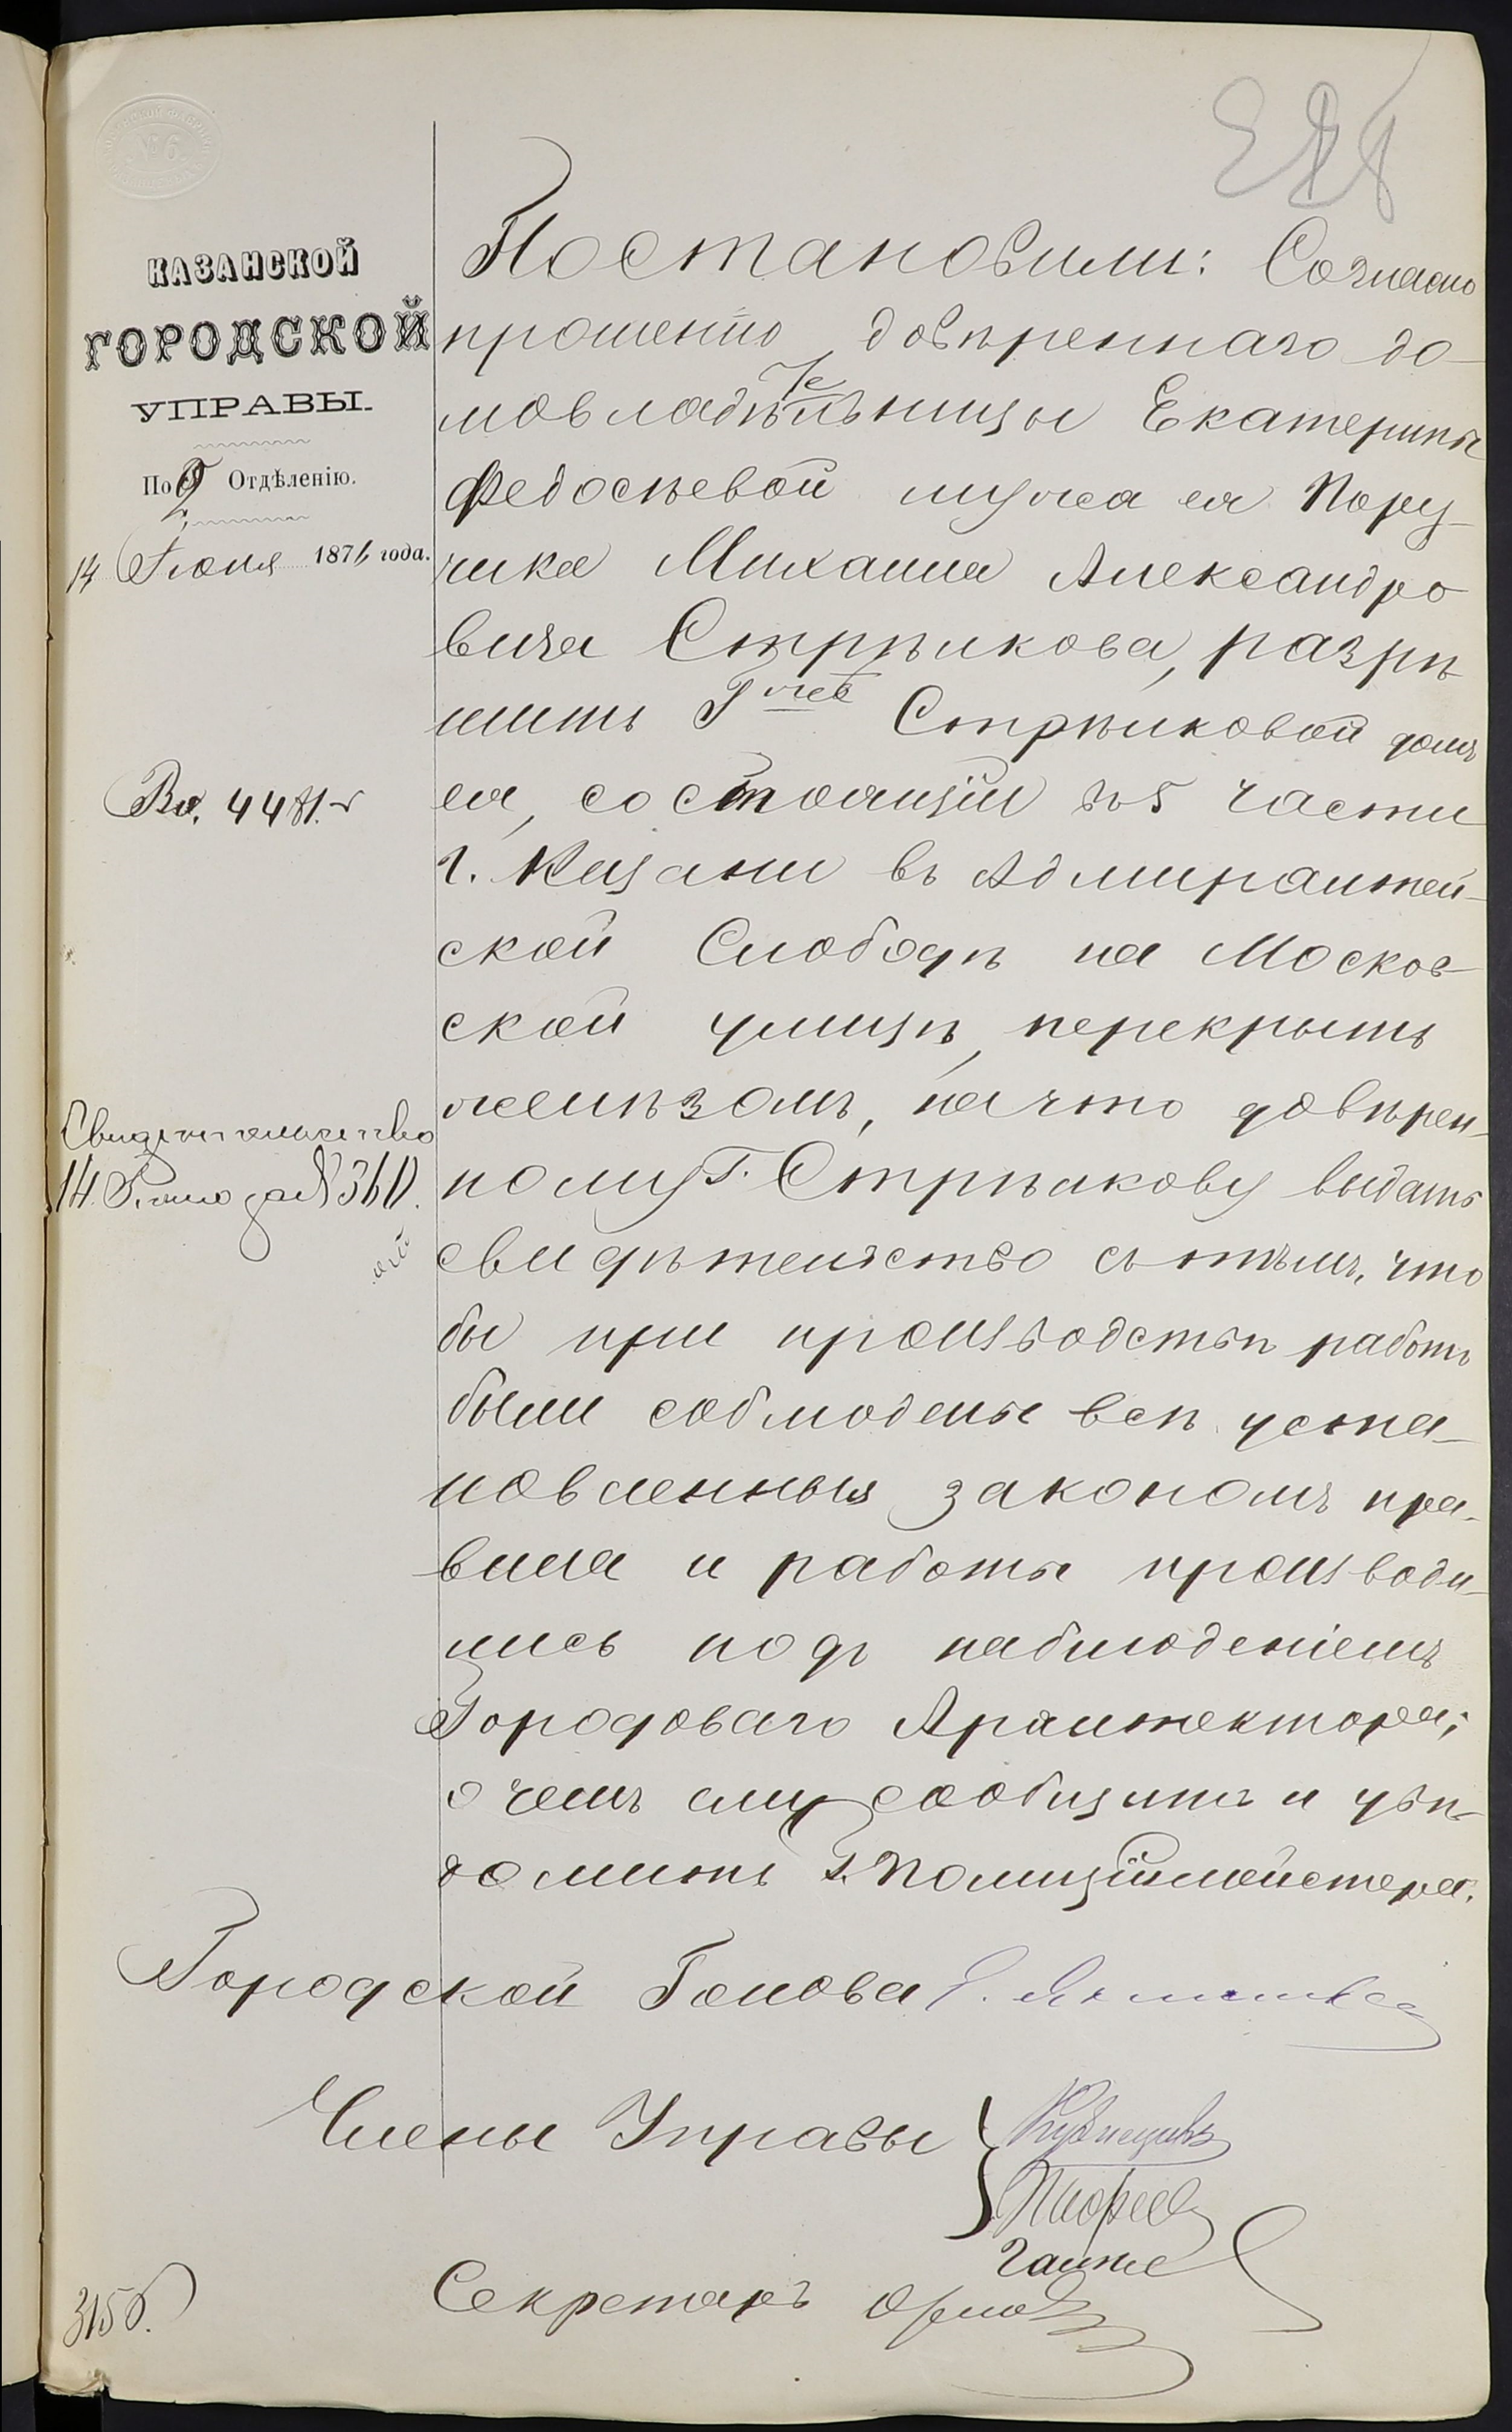 КАЗАНСКОЙ
ГОРОДСКОЙ
УПРАВЫ.
По 2 Отдѣленію.
14 Іюня 1876 года.
Вх. 4481.
Свидетельство
14 Іюня за № 360.
Постановили: Согласно
прошенію довѣреннаго до-
мовладѣтельницы Екатерины
Федосѣевой мужа ея Пору-
чика Михаила Александро
вича Стрѣлкова, разрѣ
шить Г-жѣ Стрѣлковой домъ
ея, состоящій въ 5 части
г. Казани въ Адмиралтей-
ской Слободѣ на Москов-
ской улицѣ, перекрыть
желѣзомъ, на что довѣрен-
ному Г. Стрѣлкову выдать
свидѣтельство съ тѣмъ, что
бы при производствѣ работъ
были соблюдены всѣ уста-
новленныя закономъ пра-
вила и работы производи-
лись подъ наблюденіемъ
Городоваго Архитектора;
о чемъ ему сообщить и увѣ-
домить Г. Полиціймейстера.
Городской Голова
Члены Управы
Кузнецовъ
Секретарь Орловъ
3156.